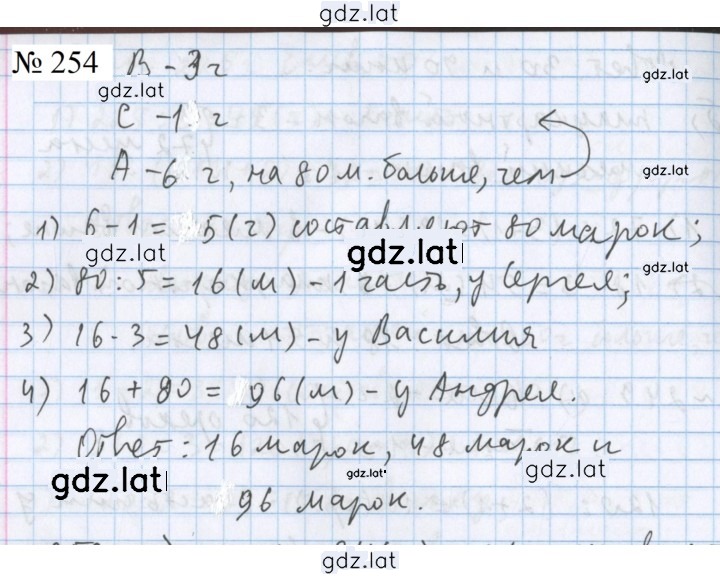 gdz.lat
№ 254 В - 3 г
gdz.lat gdz.lat
С - 1 г
А - 6 г, на 80 м. больше, чем gdz.lat
1) 6-1= 5(г) составляют 80 марок;
gdz.lat gdz.lat gdz.lat
2) 80:5=16(м) - 1 часть, у Сергея;
3) 16·3=48(м) - у Василия
4) 16+80= 96(м) - у Андрея.
Ответ: 16 марок, 48 марок и
gdz.lat gdz.lat gdz.lat
96 марок.
gdz.lat